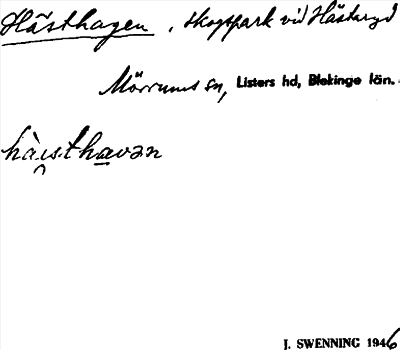 Hästhagen, skogspark vid Hästaryd
Mörrums sn, Listers hd, Blekinge län.
J. SWENNING 1946